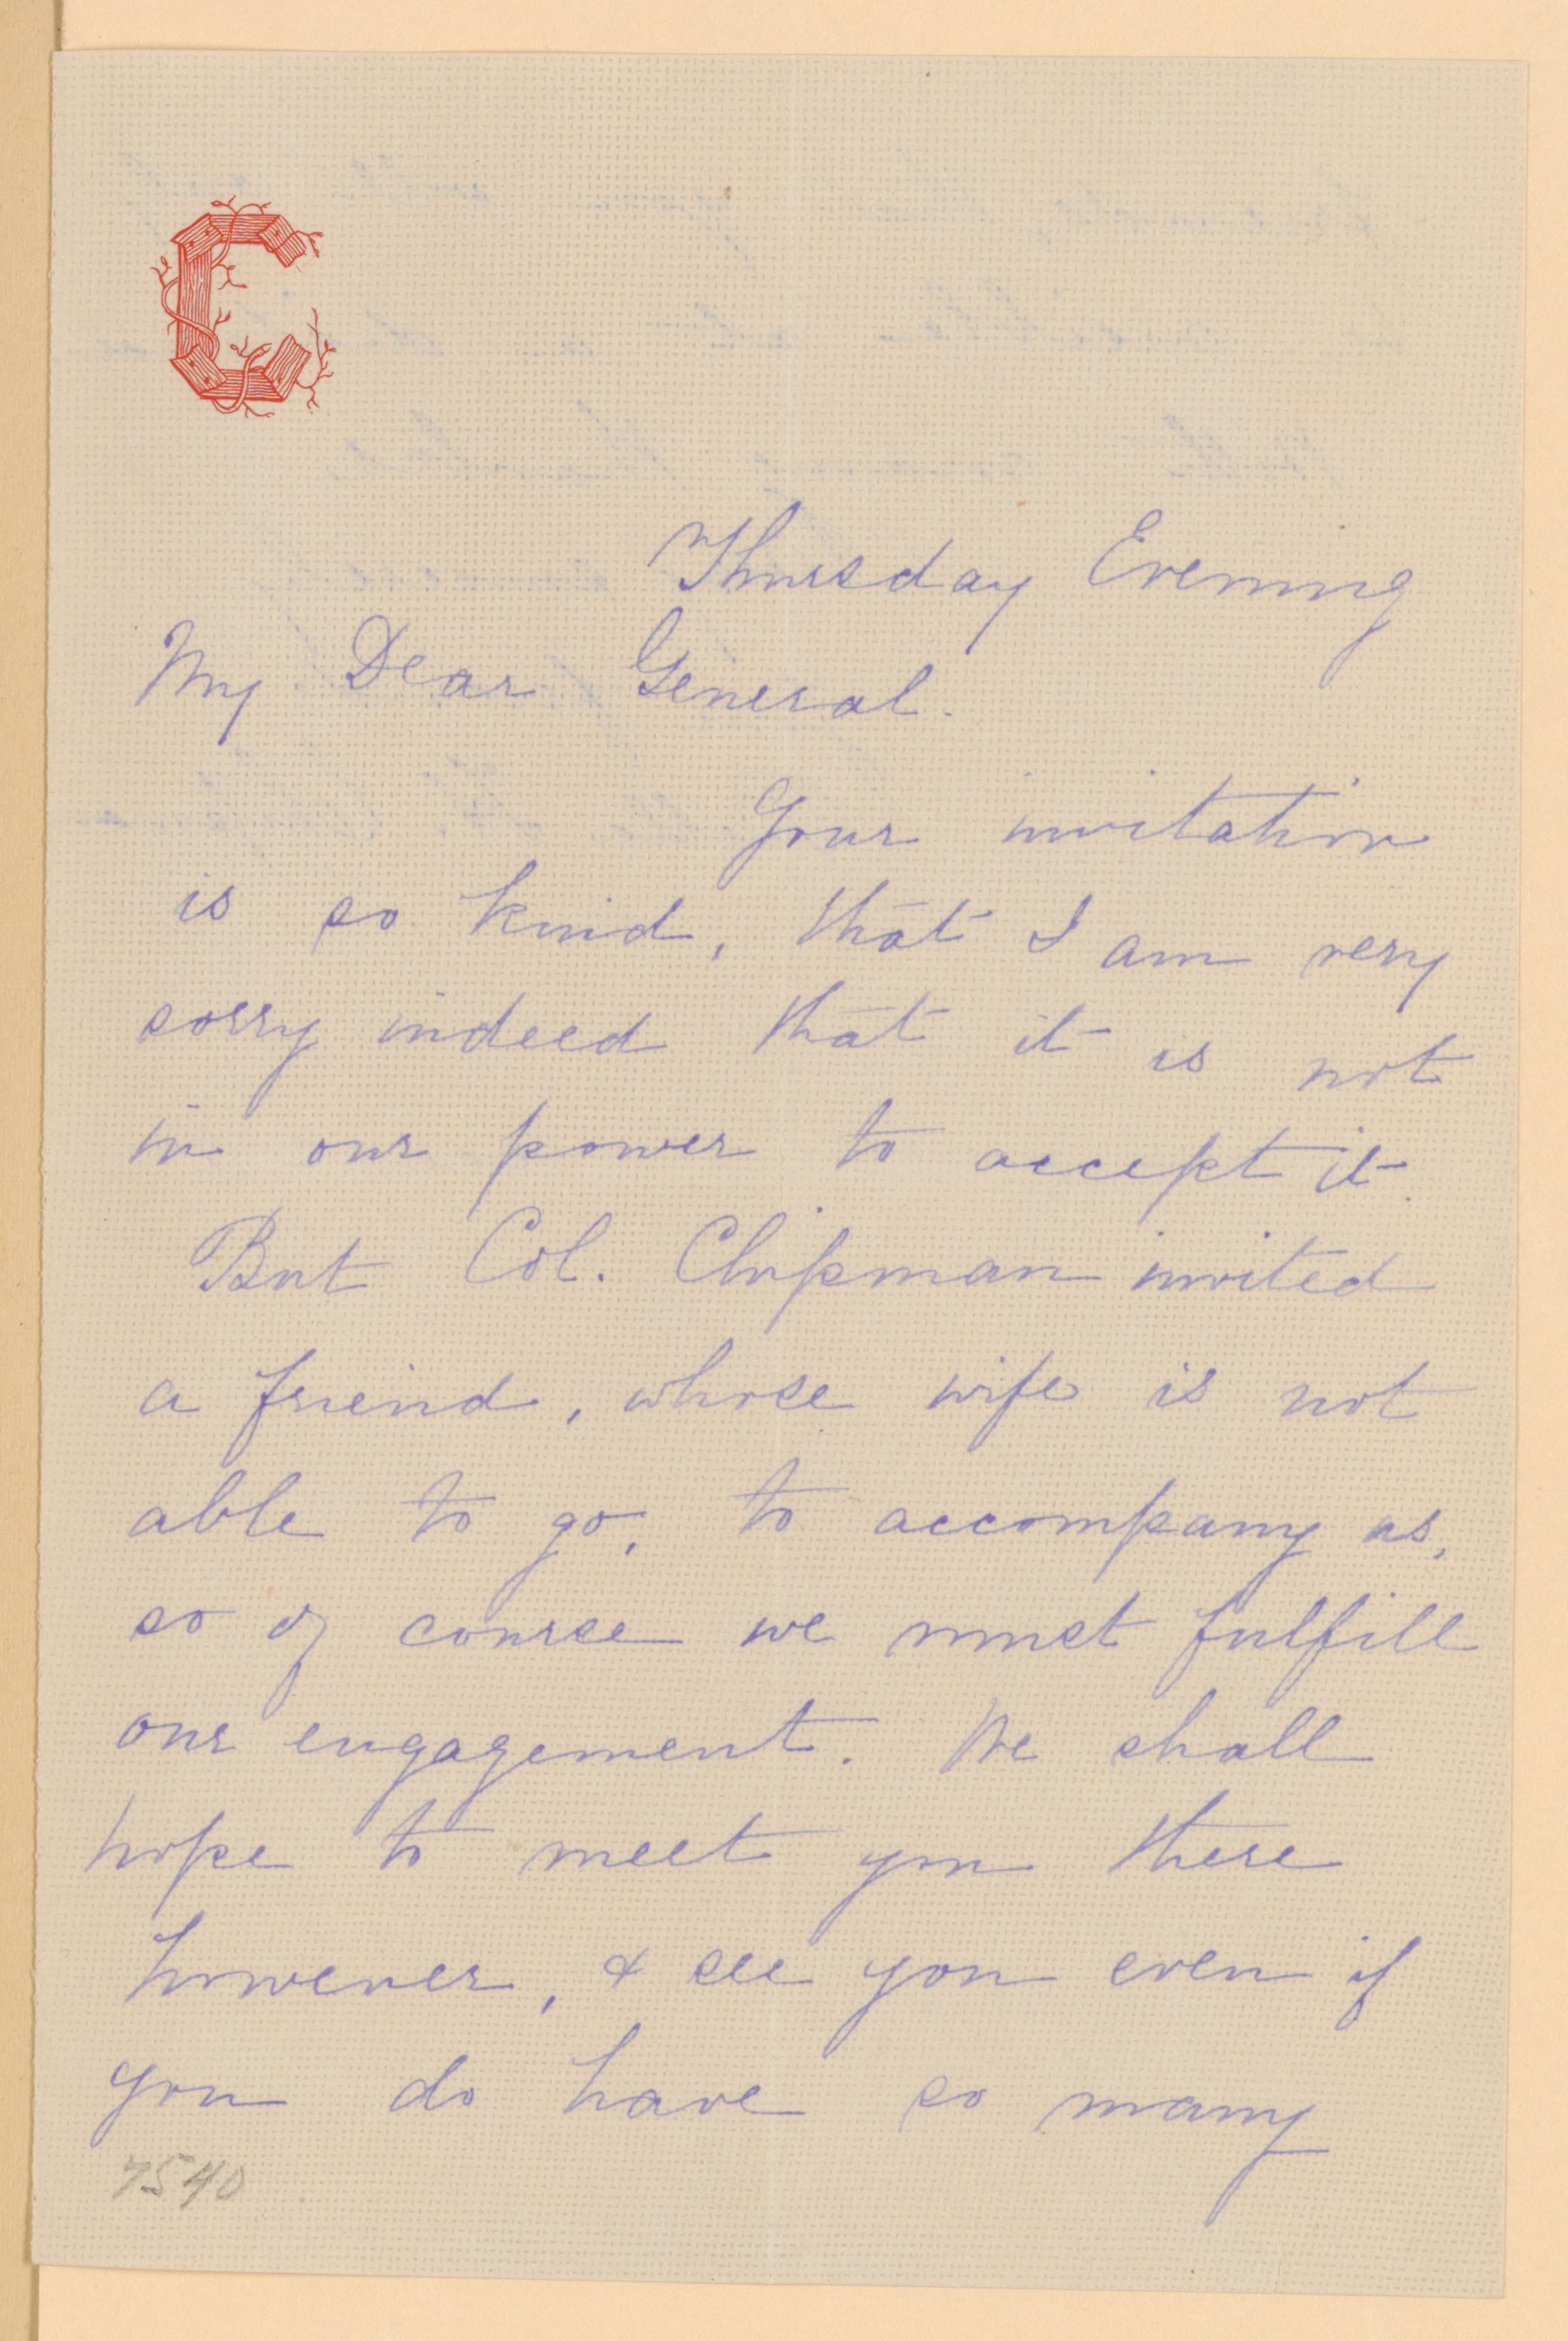 C
Thursday Evening
My Dear General.
Your invitation
is so kind, that I am very
sorry indeed that it is not
in our power to accept it.
But Col. Chipman invited
a friend, whose wife is not
able to go, to accompany us,
so of course we must fulfill
our engagement. We shall
hope to meet you there
however, & see you even if
you do have so many
7540